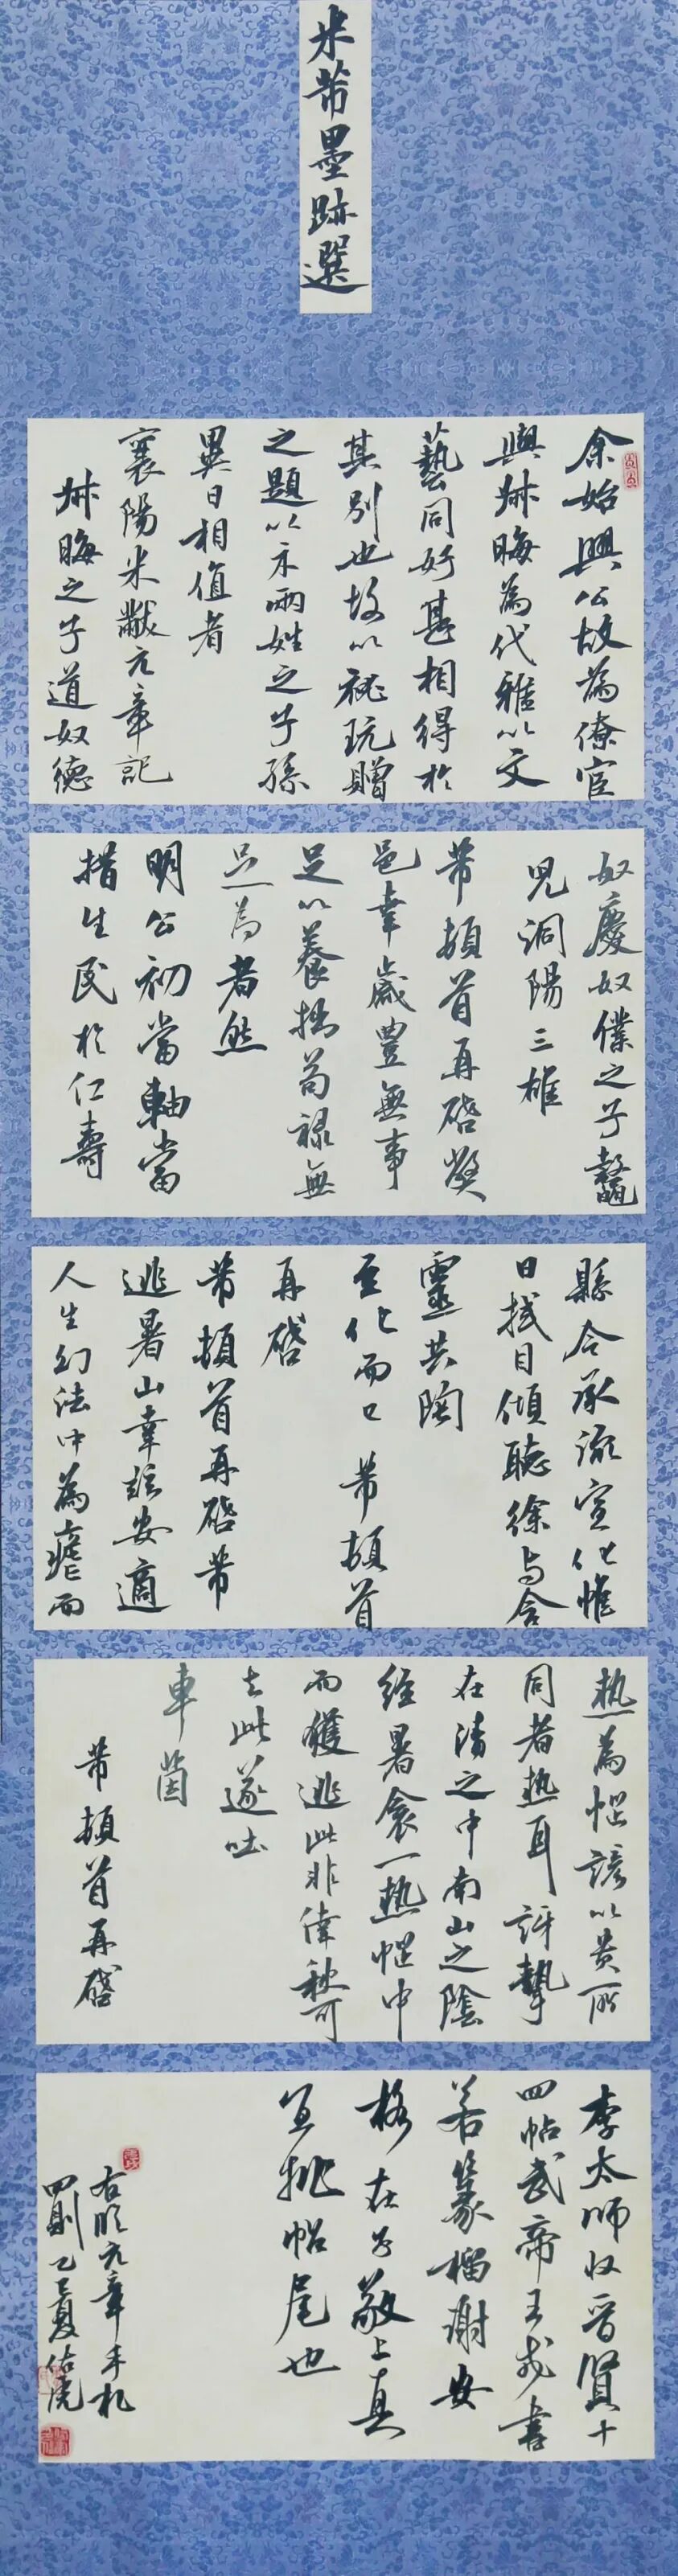 米芾墨跡選
余始興公故為僚宦
與叔晦為代雅以文
藝同好甚相得於
其別也故以秘玩贈
之題以示兩姓之子孫
異日相值者
襄陽米黻元章記
叔晦之子道奴德
奴慶奴僕之子鼇
兒洞陽三雄
芾頓首再啓弊
邑幸歲豊無事
足以養拙苟祿無
足為者然
明公初當軸當
措生民於仁壽
縣令承流宣化惟
日拭目傾聽徐與含
靈共陶
至化而已 芾頓首
再啓
芾頓首再啓芾
逃暑山幸兹安適
人生幻法中為虐而
热為惱諺以貴所
同者热耳訝摯
在清之中南山之陰
經暑衾一热惱中
而獲逃此非偉秋可
去此遂吐
車茵
芾頓首再啓
李太師收晋賢十
四帖武帝王戎書
若篆榴謝安
格在子敬上真
宜批帖尾也
右臨元章手札
四則乙巳夏